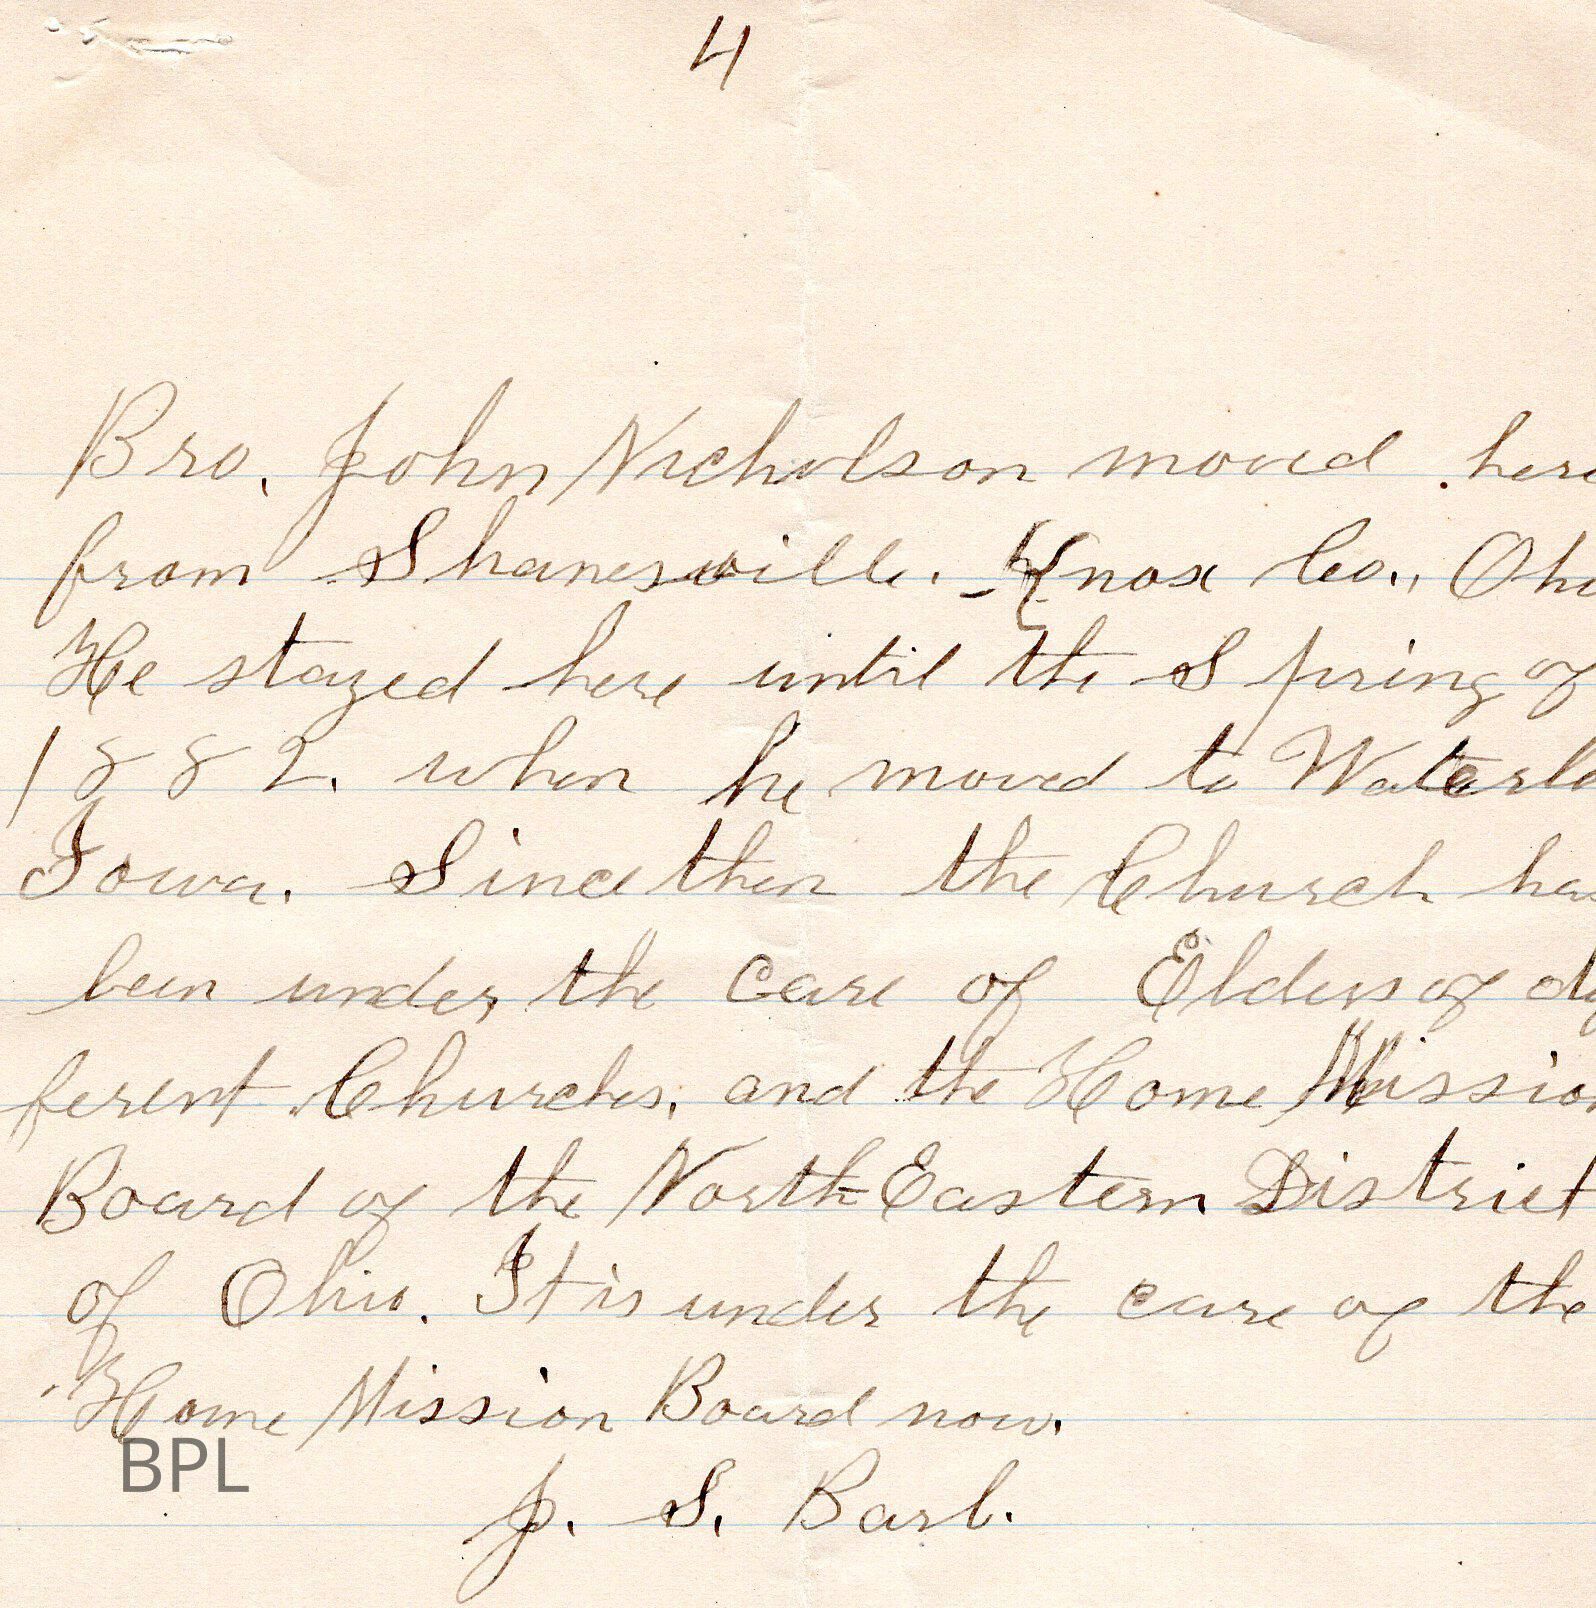 4
Bro. John Nicholson moved here
from Shanesville. Knox Co., Ohi
He stayed here until the Spring of
1882. when he moved to Waterlo
Iowa. Since then the Church has
been under the care of Elders of dif
ferent Churches, and the Home Mission
Board of the North-Eastern District
of Ohio. It is under the care of the
Home Mission Board now.
BPL
J. S. Barl.